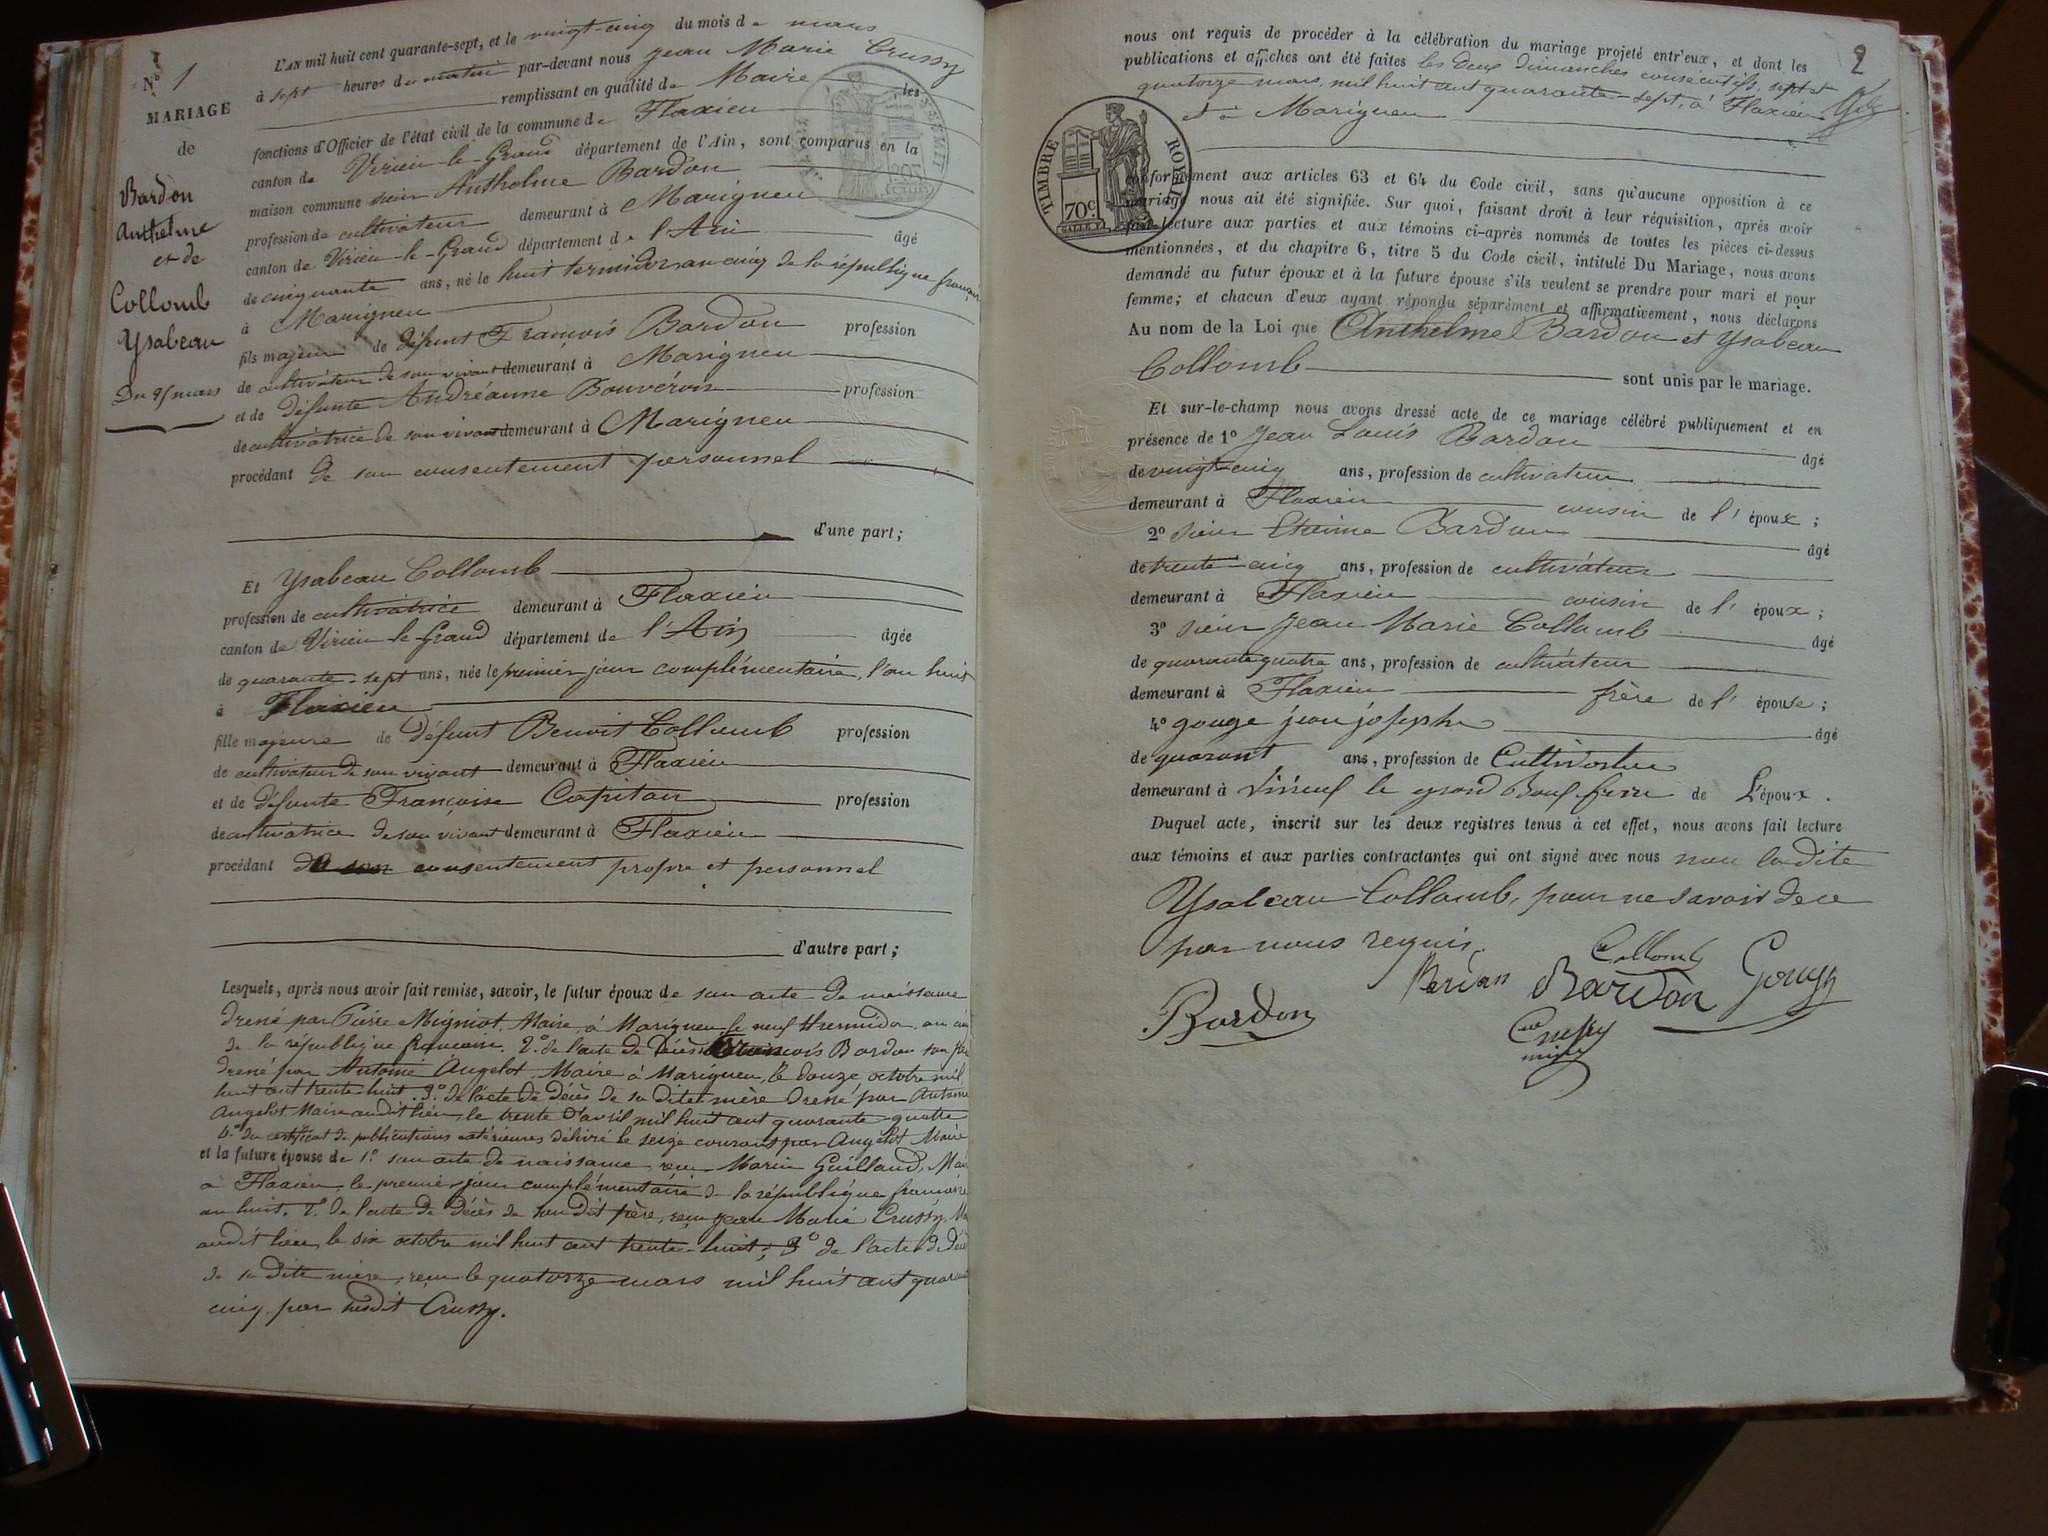 N° 1
MARIAGE
de
Bardon
Anthelme
et de
Collomb
Ysabeau
Du 25 mars
L'AN mil huit cent quarante-sept, et le vingt-cinq du mois de mars
à sept heures du matin par-devant nous Jean Marie Crussy
remplissant en qualité de Maire les
fonctions d'Officier de l'état civil de la commune de Flaxieu
canton de Virieu-le-Grand département de l'Ain, sont comparus en la
maison commune sieur Anthelme Bardon
profession de cultivateur demeurant à Marigneu
canton de Virieu-le-Grand département de l'Ain âgé
de cinquante ans, né le huit termidor an cinq de la république français
à Marigneu
fils majeur de défunt François Bardon profession
de cultivateur de son vivant demeurant à Marigneu
et de défunte Andréanne Bouvéron profession
de cultivatrice de son vivant demeurant à Marigneu
procédant de son consentement personnel
d'une part;
Et Ysabeau Collomb
profession de cultivatrice demeurant à Flaxieu
canton de Virieu-le-Grand département de l'Ain âgée
de quarante-sept ans, née le premier jour complémentaire, l'an huit
à Flaxieu
fille majeure de défunt Benoit Collomb profession
de cultivateur de son vivant demeurant à Flaxieu
et de défunte Françoise Capitan profession
de cultivatrice de son vivant demeurant à Flaxieu
procédant de son consentement propre et personnel
d'autre part;
Lesquels, après nous avoir fait remise, savoir, le futur époux de son acte de naissance
dressé par Pierre Migniot, Maire, à Marigneu le neuf thermidor, an cinq
de la république française. 2° de l'acte de décès François Bardon son père
dressé par Antoine Angelot Maire à Marigneu, le douze octobre mil
huit cent trente-huit. 3° de l'acte de décès de sa dite mère dressé par Antoine
Angelot Maire audit lieu, le trente d'avril mil huit cent quarante-quatre
4° du certificat de publications extérieures délivré le seize courant par Angelot Maire
et la future épouse de 1° son acte de naissance reçu Marin Guilland, Maire
à Flaxieu le premier jour complémentaire de la république française
an huit. 2° de l'acte de décès de son dit père, reçu Jean Marie Crussy, Ma
audit lieu le six octobre mil huit cent trente-huit; 3° de l'acte de décès
de sa dite mère, reçu le quatorze mars mil huit cent quarante
cinq par susdit Crussy.
2
nous ont requis de procéder à la célébration du mariage projeté entr'eux, et dont les
publications et affiches ont été faites les deux dimanches consécutifs, sept et
quatorze mars, mil huit cent quarante-sept, à Flaxieu
et à Marigneu
TIMBRE ROYAL
70c.
conformément aux articles 63 et 64 du Code civil, sans qu'aucune opposition à ce
mariage nous ait été signifiée. Sur quoi, faisant droit à leur réquisition, après avoir
fait lecture aux parties et aux témoins ci-après nommés de toutes les pièces ci-dessus
mentionnées, et du chapitre 6, titre 5 du Code civil, intitulé Du Mariage, nous avons
demandé au futur époux et à la future épouse s'ils veulent se prendre pour mari et pour
femme; et chacun d'eux ayant répondu séparément et affirmativement, nous déclarons
Au nom de la Loi que Anthelme Bardon et Ysabeau
Collomb sont unis par le mariage.
Et sur-le-champ nous avons dressé acte de ce mariage célébré publiquement et en
présence de 1° Jean Louis Bardon âgé
de vingt-cinq ans, profession de cultivateur
demeurant à Flaxieu cousin de l'époux;
2° sieur Etienne Bardon âgé
de trente-cinq ans, profession de cultivateur
demeurant à Flaxieu cousin de l'époux;
3° sieur Jean Marie Collomb âgé
de quarante quatre ans, profession de cultivateur
demeurant à Flaxieu frère de l'épouse;
4° gouge jean josephe âgé
de quarant ans, profession de Cultivateur
demeurant à Virieuf le grand Bouf frere de L'époux.
Duquel acte, inscrit sur les deux registres tenus à cet effet, nous avons fait lecture
aux témoins et aux parties contractantes qui ont signé avec nous non la dite
Ysabeau Collomb, pour ne savoir de ce
par nous requis.
Collomb
Bardon Bardon Gouge
Bardon
Crussy
maire